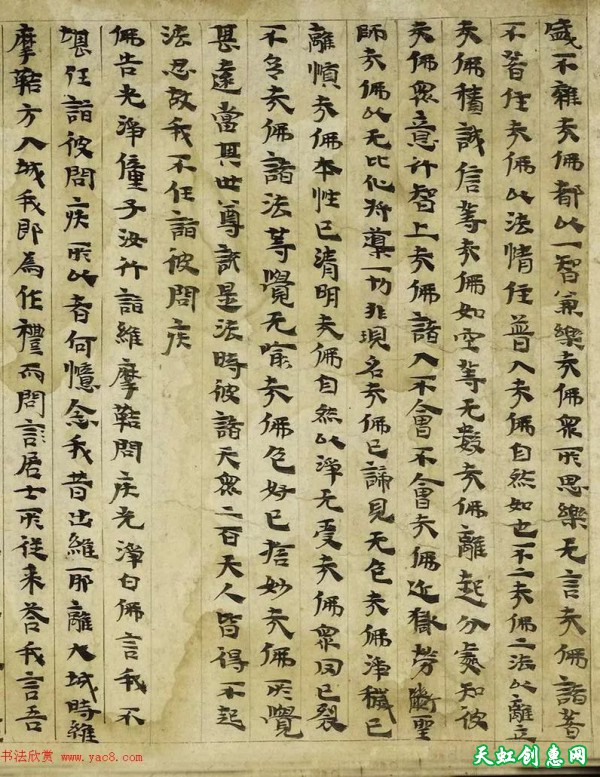 不雜夫佛都以一智兼樂夫佛眾所思樂无言夫佛諸著
不著住夫佛以法情住普入夫佛自然如也不二夫佛二法以離立
夫佛積誠信等夫佛如空等无數夫佛離起分處知彼
夫佛眾意行智上夫佛諸入不會不會夫佛近獄勞斷聖
師夫佛以无比化將藥一切非現名夫佛已諦見无色夫佛淨穢已
離慎夫佛本性已清明夫佛自然以淨无受夫佛眾因已裂
不夫佛諸法等覺无喻夫佛色好已捨妙夫佛所覺
甚遠當其世尊說是法時彼諸天眾二百天人皆得不起
法忍故我不任詣彼問疾
佛告光淨僮子汝行詣維摩詰問疾光淨白佛言我不
堪任詣彼問疾所以者何憶念我昔出維耶離大城時維
摩詰方入城我即為作禮而問言居士所從來答我言吾
书法欣赏 www.yac8.com
天虹创惠网